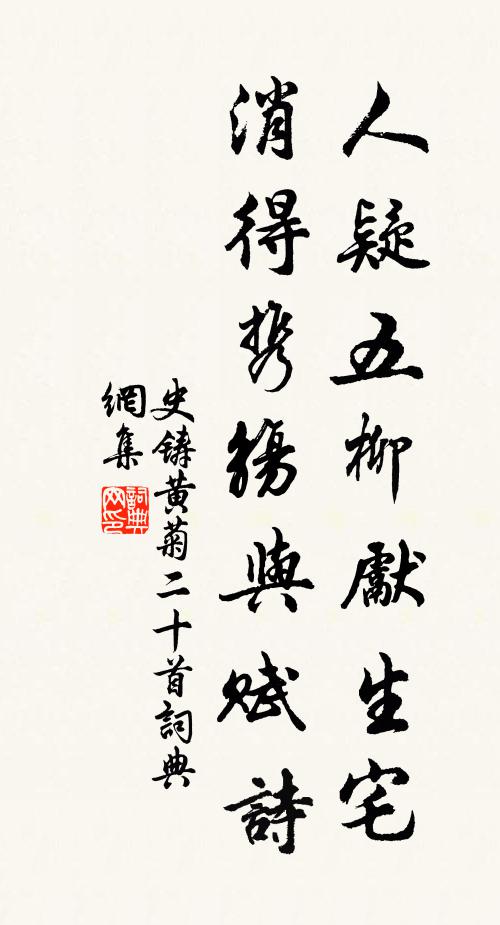 人疑五柳獻生宅
消得携觴與賦詩
史鑄黄菊二十首詞典
網集
詞典
网印